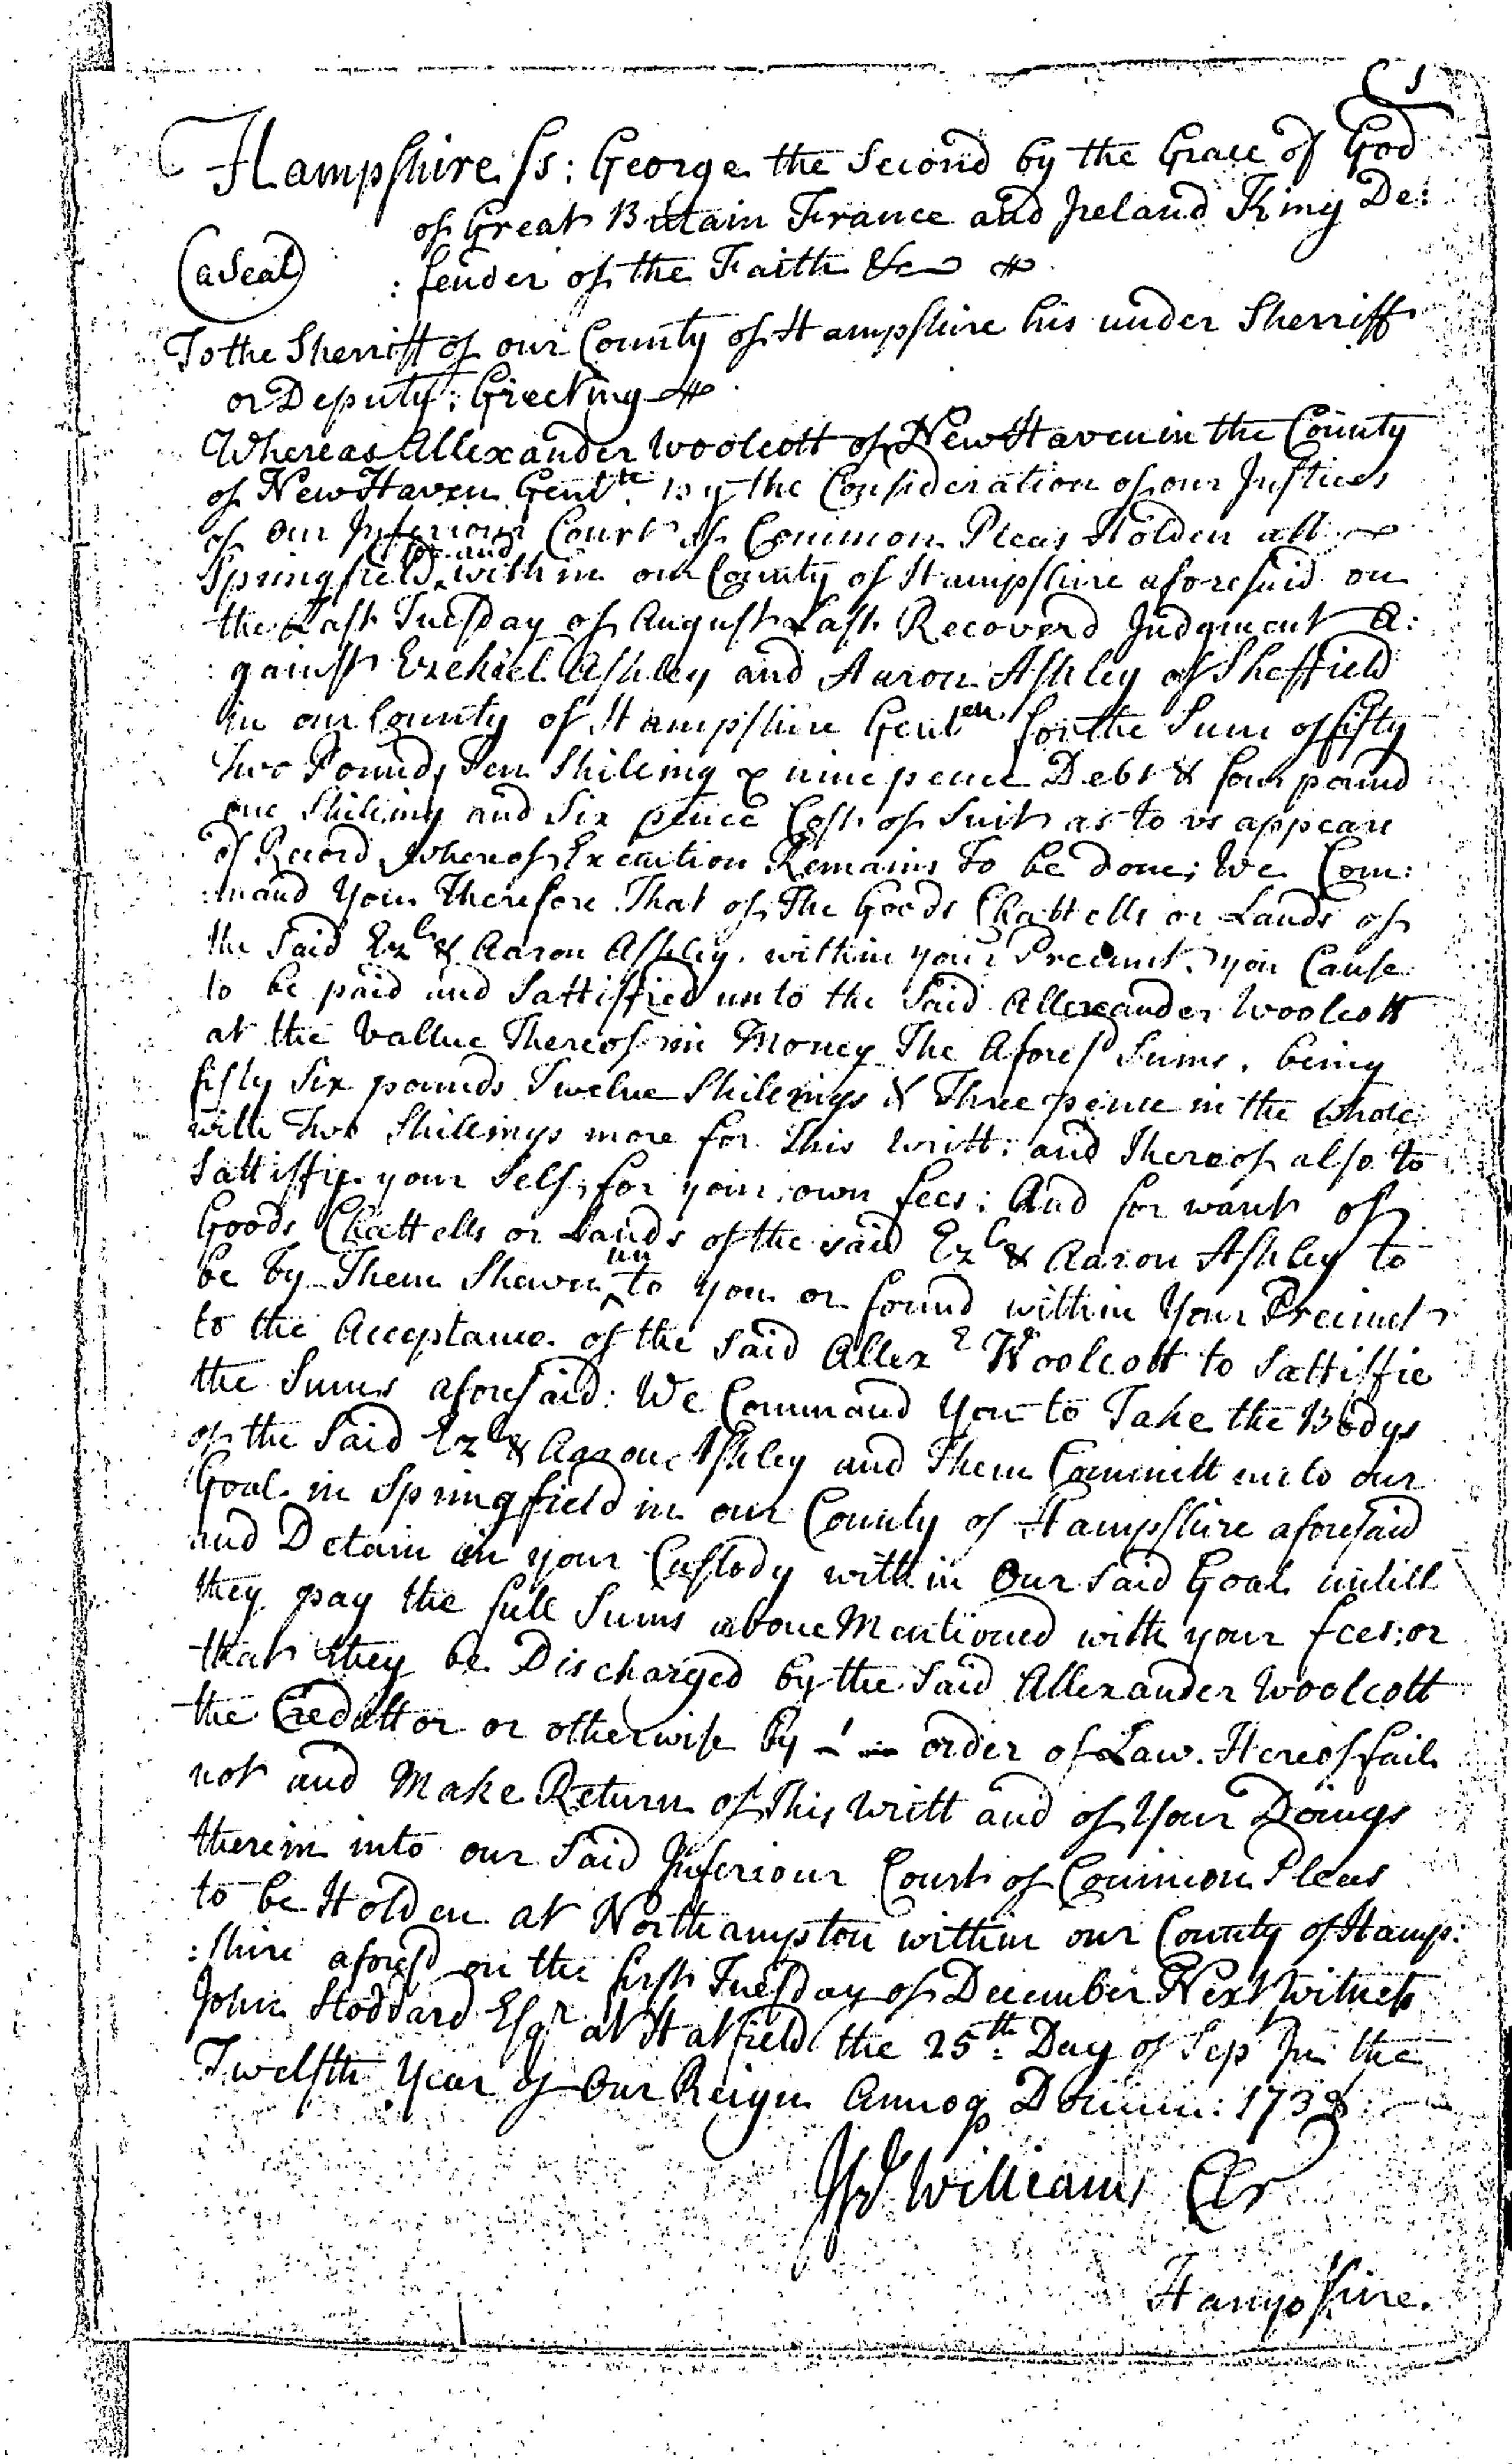 1
Hampshire ss: George the Second by the Grace of God
of Great Britain France and Ireland King De:
(a Seal) : fender of the Faith &c
To the Sherriff of our County of Hampshire his under Sherriff
or Deputy; Greeting
Whereas Allexander Woolcott of New Haven in the County
of New Haven Gentle. by the Consideration of our Justices
of our Inferiour Court of Common Pleas Holden att
Springfield for and within our County of Hampshire aforesaid on
the Last Tuesday of August Last Recoverd Judgment A:
: gainst Ezekiel Ashley and Aaron Ashley of Sheffield
in our County of Hampshire Gentlen for the Sum of fifty
Two Pounds Ten Shilling & nine pence Debt & four pound
one Shilling and Six pence Cost of Suit as to us appeare
of Record whereof Execution Remains To be done; We Com:
:mand You Therefore That of The Goods Chattells or Lands of
the Said Ezl & Aaron Ashley within your Precinct you Cause
to be paid and Sattisfied unto the Said Allexander Woolcott
at the Vallue Thereof in Money The Aforesd Sums, being
fifty Six pounds Twelve Shillings & Three pence in the whole
with Two Shillings more for This Writt: and Thereof also to
Sattisfie your Self, for your own fees: And for want of
Goods Chattells or Lands of the said Ezl & Aaron Ashley to
be by Them Shewn unto you or found within Your Precinct
to the Acceptance of the Said Allexr Woolcott to Sattisfie
the Sums aforesaid: We Command You to Take the Bodys
of the Said Ezl & Aaron Ashley and Them Committ unto our
Goal in Springfield in our County of Hampshire aforesaid
and Detain in your Custody within Our Said Goal untill
they pay the full Sums above Mentioned with your fees; or
that they be Discharged by the Said Allexander Woolcott
the Credittor or otherwise By order of Law. Hereof fail
not and Make Return of This Writt and of Your Doings
therein into our Said Inferiour Court of Common Pleas
to be Holden at Northampton within our County of Hamp:
: shire aforesd on the first Tuesday of December Next Witness
John Stoddard Esqr at Hatfield the 25th. Day of Sep In the
Twelfth Year of Our Reign Annoq Domini: 1738:
Williams Cler
Hampshire.